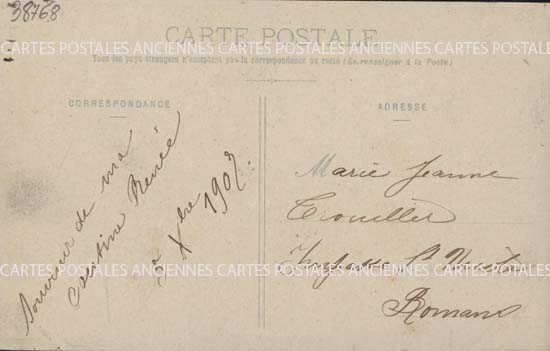 38768
CARTE POSTALE
CARTES POSTALES ANCIENNES CARTES POSTALES ANCIENNES CARTES POSTALES
Tous les pays étrangers n'acceptent pas la correspondance au recto (Se renseigner à la Poste)
CORRESPONDANCE
Souvenir de ma
cousine Renée
Xbre 190
ADRESSE
Marie Jeanne
Trouiller
Impasse St
Romans
CARTES POSTALES ANCIENNES CARTES POSTALES ANCIENNES CARTES POSTALES